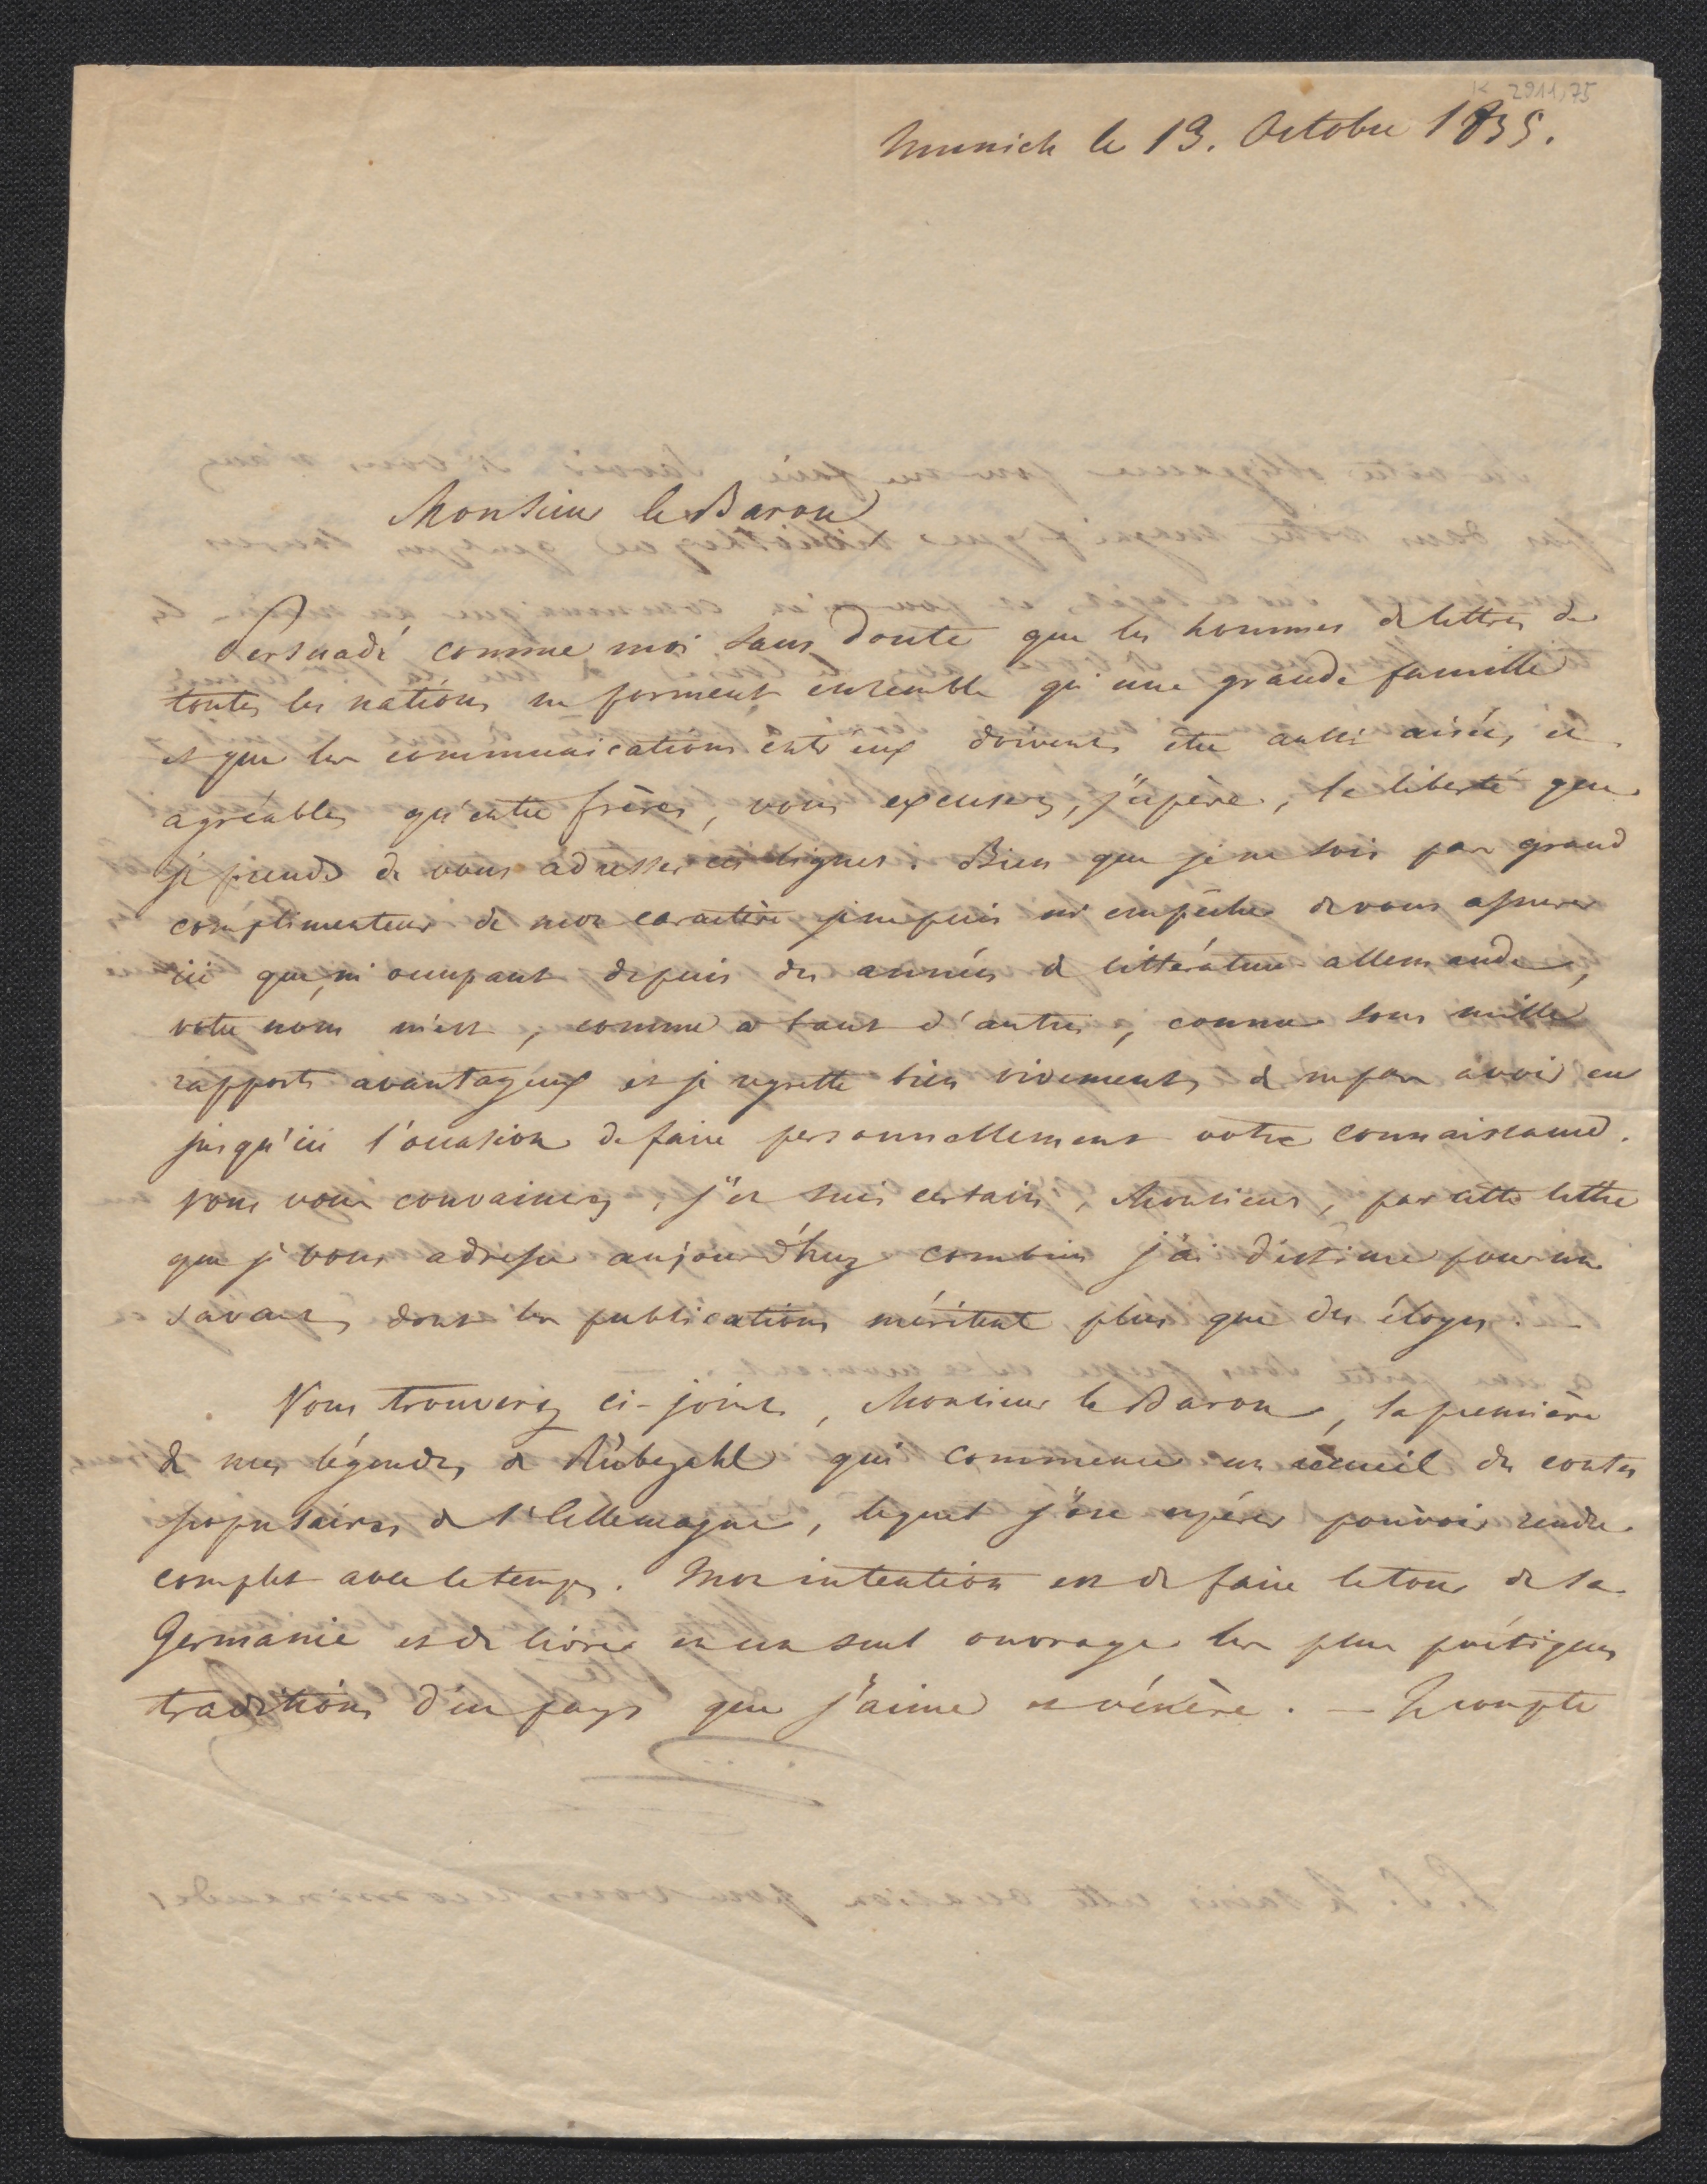 K 2911,75
Munich le 13. Octobre 1835.
Monsieur le Baron
Persuadé comme moi sans doute que les hommes de lettres de
toutes les nations ne forment ensemble qu'une grande famille
et que les communications entr'eux doivent être aussi aisées et
agréables qu'entre frères, vous excuserez, j'espère, la liberté que
je prends de vous adresser ces lignes. Bien que je ne sois pas grand
complimenteur de mon caractère je ne puis m'empêcher de vous assurer
ici que, m'occupant depuis des années de littérature allemande,
votre nom m'est, comme a tant d'autres, connu sous mille
rapports avantageux et je regrette bien vivement de ne pas avoir eu
jusqu'ici l'occasion de faire personnellement votre connaissance.
Vous vous convaincrez, j'en suis certain, Monsieur, par cette lettre
que je vous adresse aujourd'huy combien j'ai d'estime pour un
savant dont les publications méritent plus que des éloges. —
Vous trouverez ci-joint, Monsieur le Baron, la première
de mes légendes de Rübezahl qui commence un recueil des contes
populaires de l'Allemagne, lequel j'ose espérer pouvoir rendre
complet avec le temps. Mon intention est de faire le tour de la
Germanie et de livrer en un seul ouvrage les plus poétiques
traditions d'un pays que j'aime et vénère. — Je compte